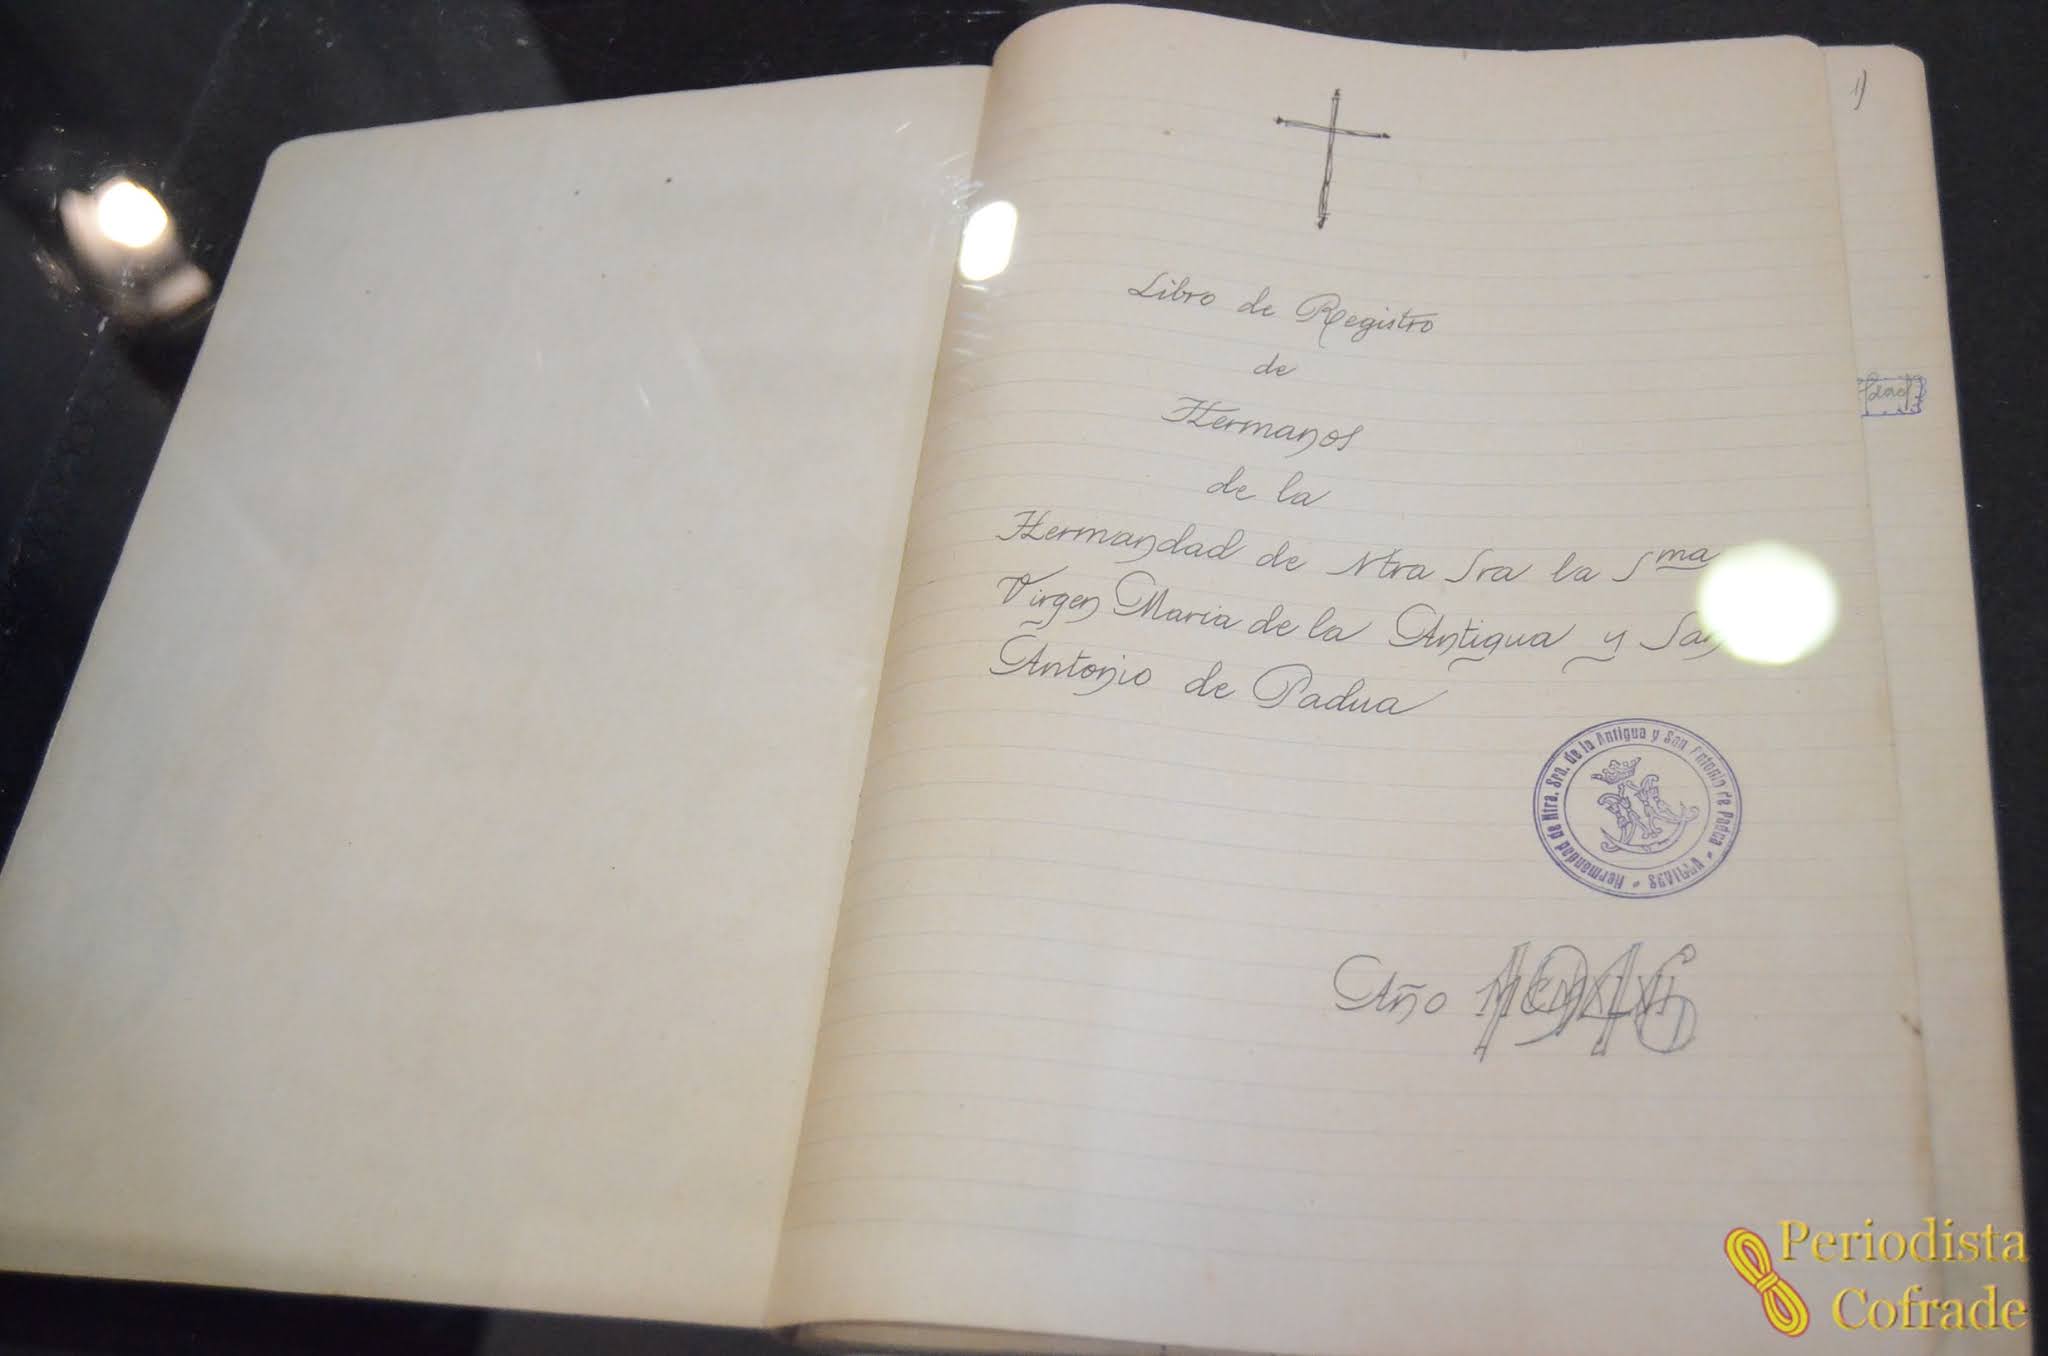 1)
Libro de Registro
de
Hermanos
de la
Hermandad de Ntra Sra la Sma
Virgen Maria de la Antigua y San
Antonio de Padua
Hermandad de Ntra. Sra. de la Antigua y San Antonio de Padua
Año 1946
Periodista
Cofrade